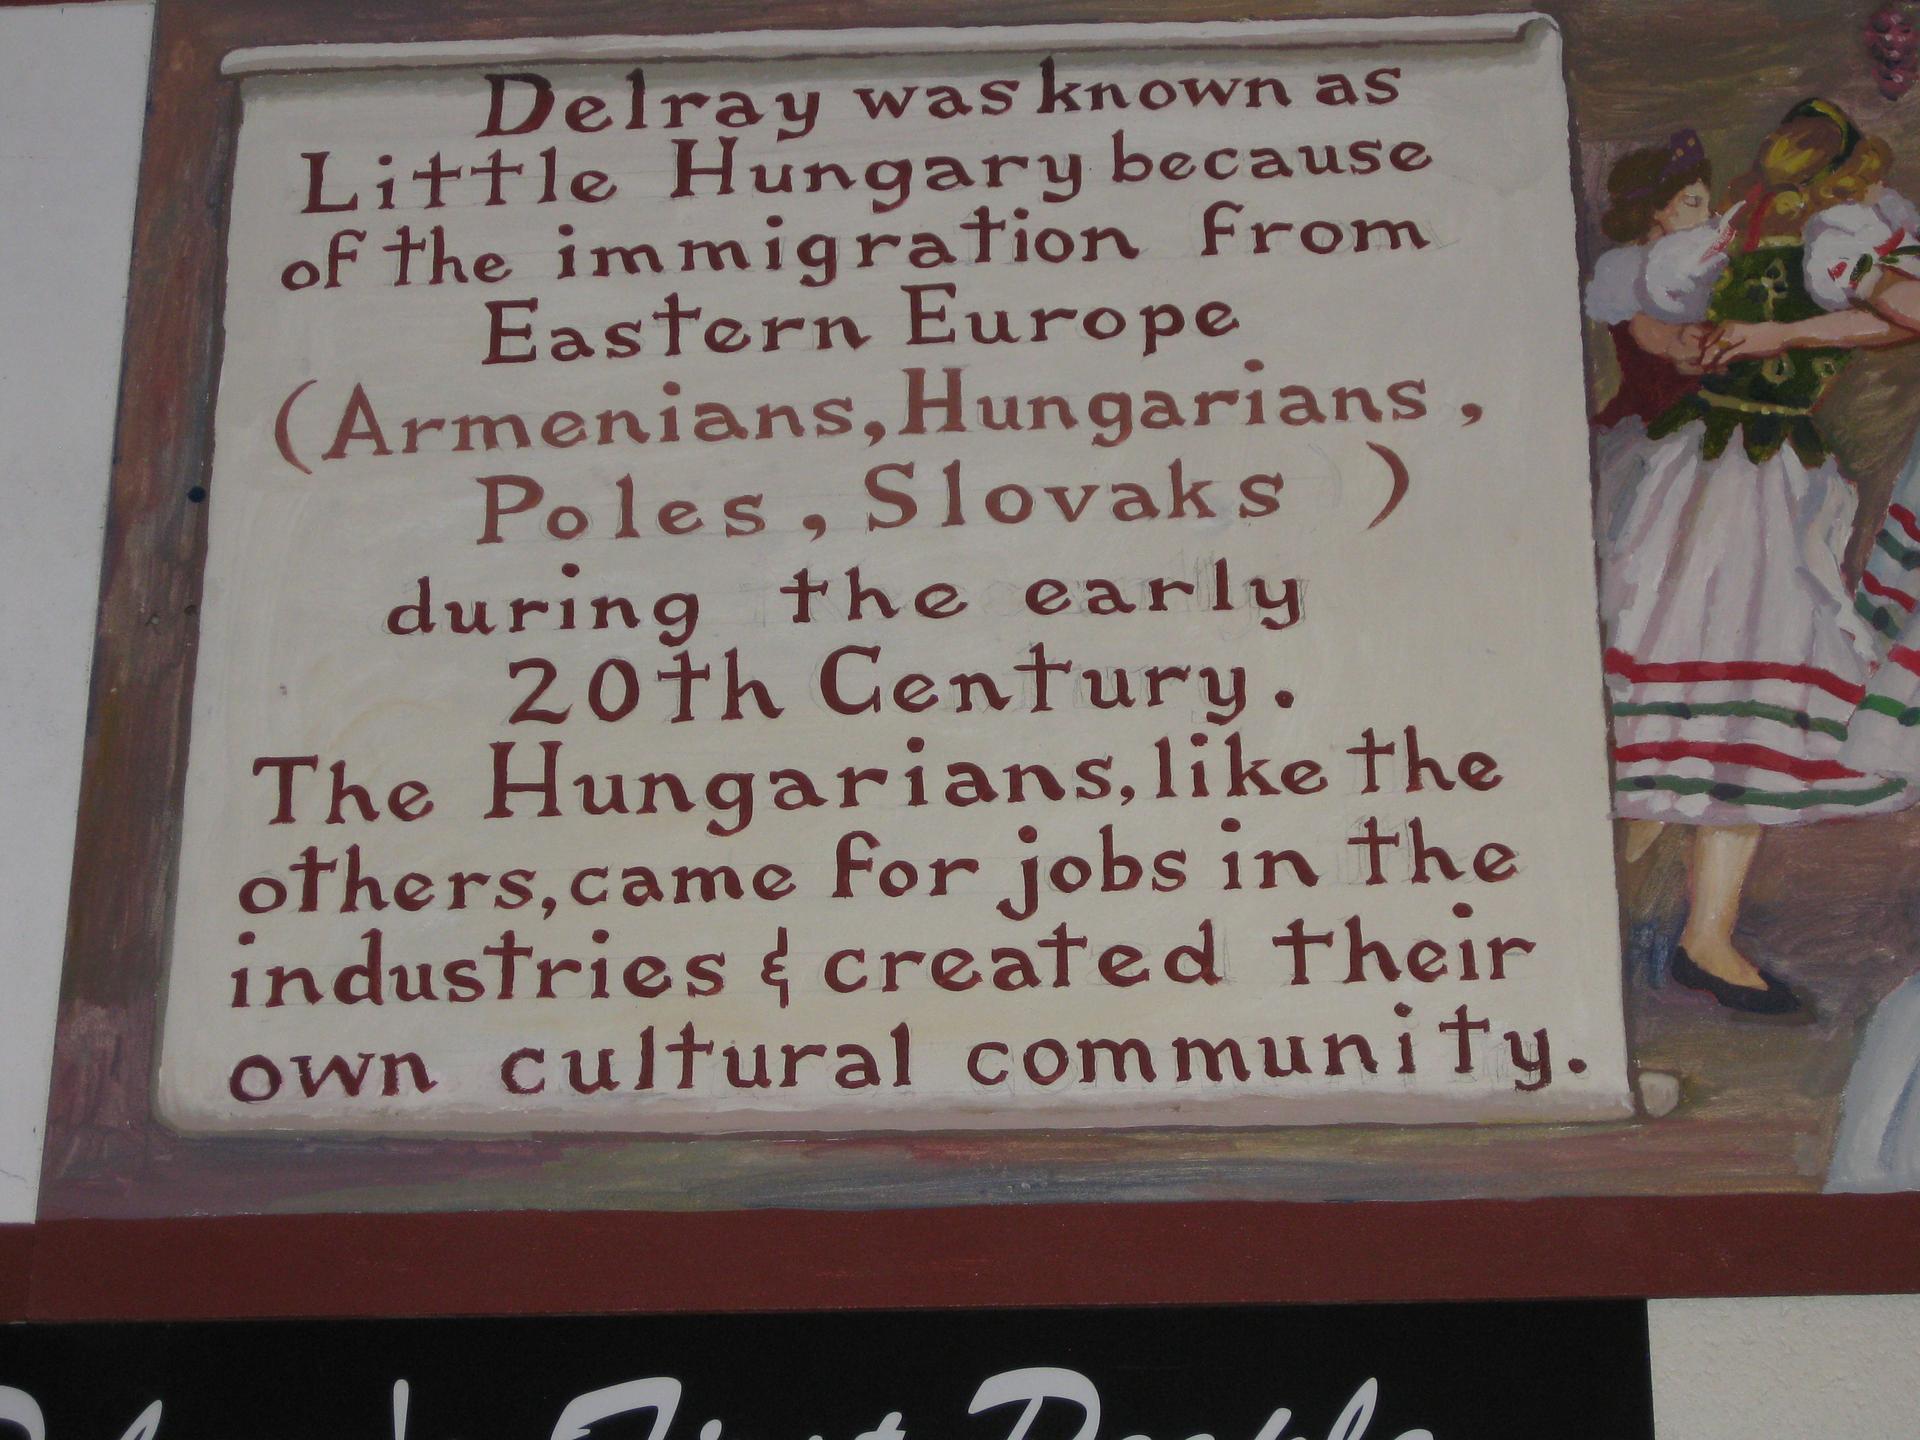 Delray was known as
Little Hungary because
of the immigration from
Eastern Europe
(Armenians, Hungarians,
Poles, Slovaks )
during the early
20th Century.
The Hungarians, like the
others, came for jobs in the
industries & created their
own cultural community.
First People